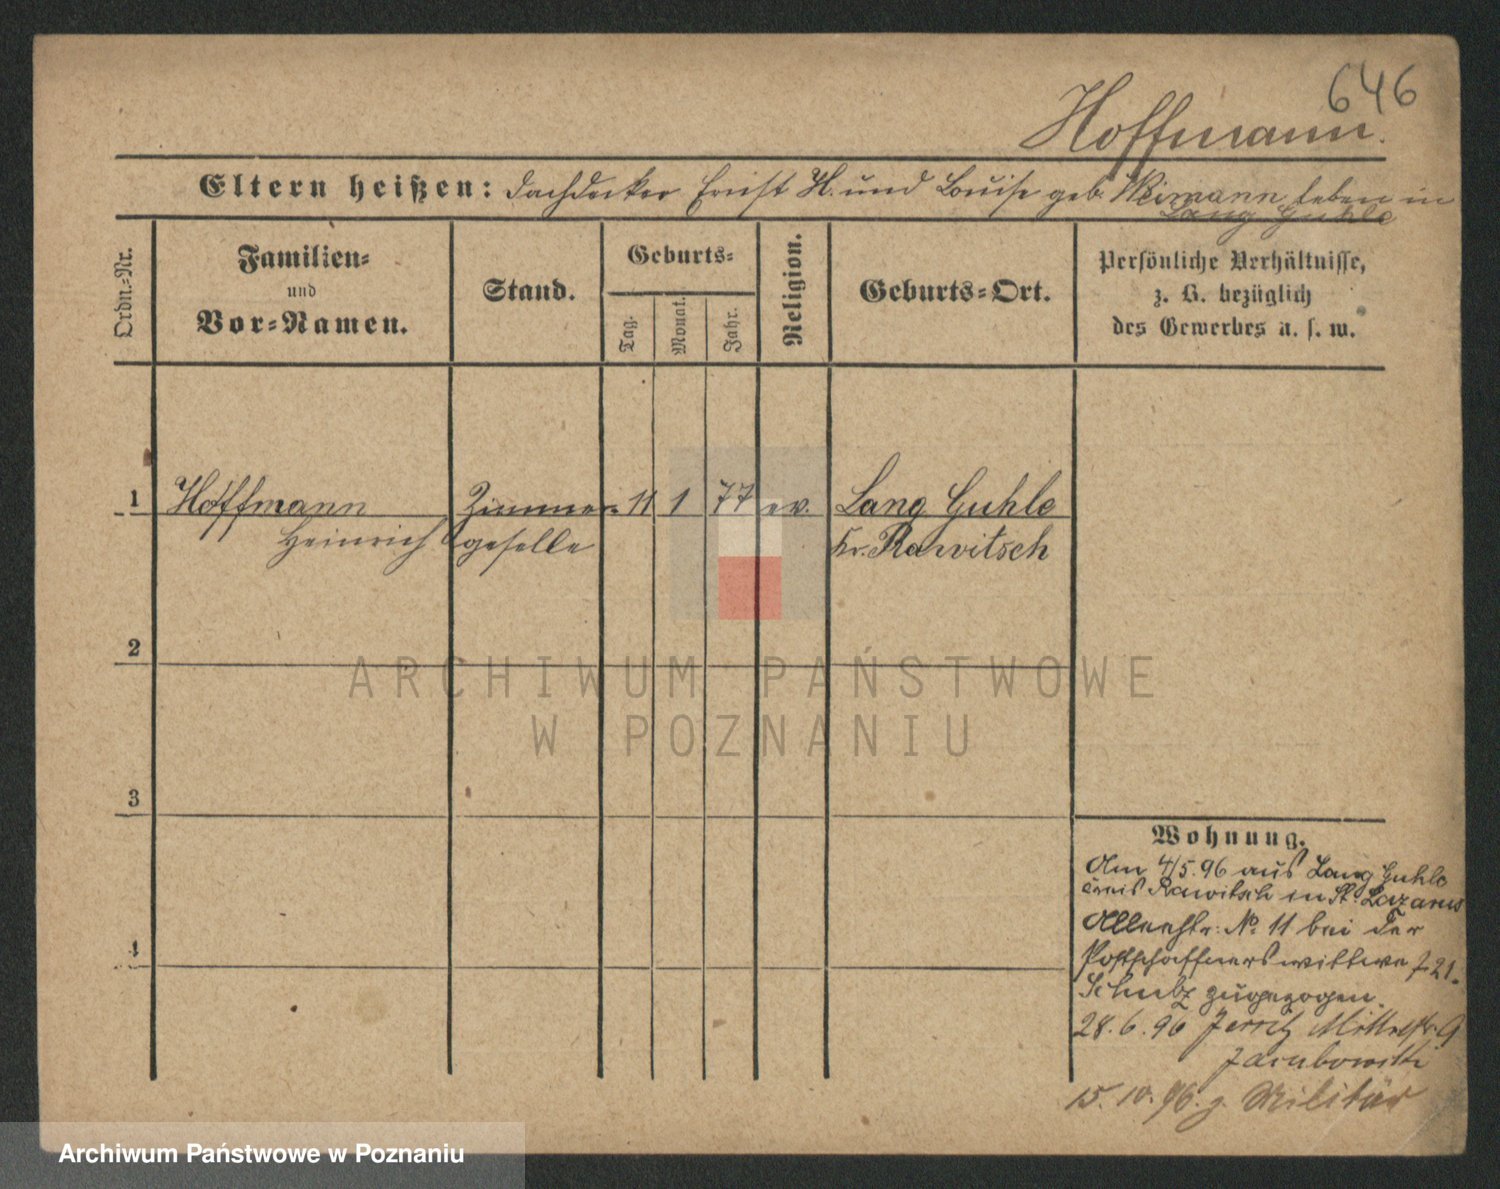 646
Hoffmann.
Eltern heißen: Dachdecker Ernst H. und Louise geb. Weimann leben in
Lang Guhle
Ordn.-Nr.
Familien-
und
Vor-Namen.
Stand.
Geburts-
Tag.
Monat.
Jahr.
Religion.
Geburts-Ort.
Persönliche Verhältnisse,
z. B. bezüglich
des Gewerbes u. s. w.
1 Hoffmann Zimmer- 11 1 77 ev. Lang Guhle
Heinrich geselle Kr. Rawitsch
2
ARCHIWUM PAŃSTWOWE
W POZNANIU
3
4
Wohnung.
Am 4/5.96 aus Lang Guhle
Kreis Rawitsch in St. Lazarus
Alleestr: No. 11 bei der
Postschaffnerswittwe
Schulz zugezogen.
28.6.96 Jersitz
15.10.96. z. Militär
Archiwum Państwowe w Poznaniu